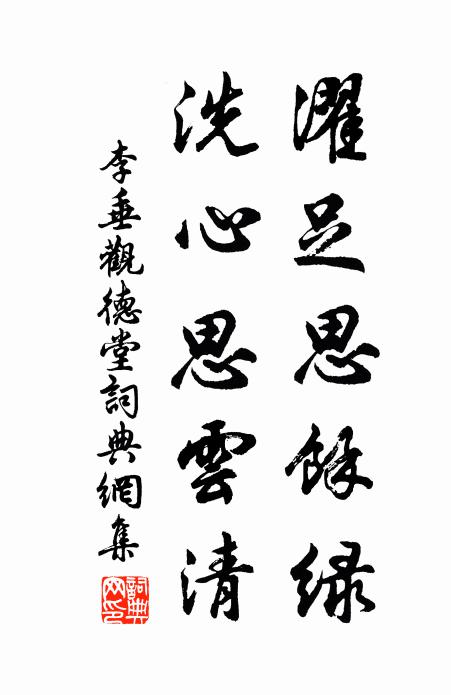 濯足思餘绿
洗心思雲清
李垂觀德堂詞典網集
詞典網印